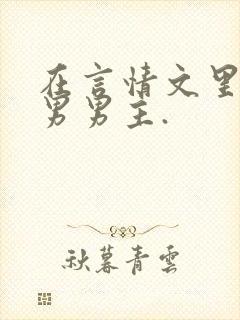 在言情文里
男男主.
秋暮青雲